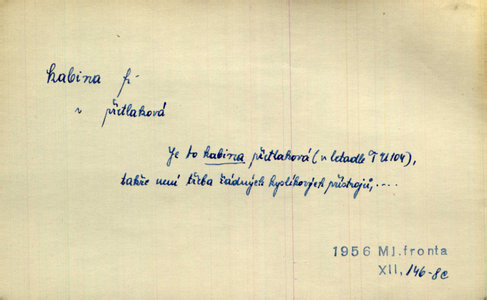 kabina f.
~ přetlaková
Je to kabina přetlaková (v letadle TU104),
takže není třeba žádných kyslíkových přístrojů, ....
1956 Ml. fronta
XII, 146-8c